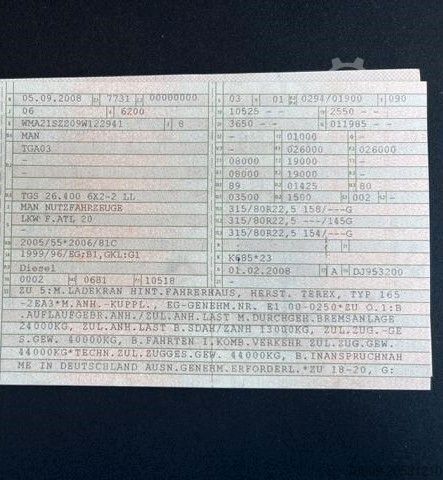 05.09.2008 7731 00000000
06 6200
WMA21SZZ09W122941 8
MAN
TGA03
-
-
TGS 26.400 6X2-2 LL
MAN NUTZFAHRZEUGE
LKW F.ATL 20
-
2005/55*2006/81C
1999/96/EG;B1,GKL:G1
Diesel
0002 0681 10518
03 01 0294/01900 090
10525 - - 2550 - -
3650 - - 011985 - -
- 01000 -
- 026000 026000
08000 19000 -
08000 19000 -
89 01425 80
03500 1500 002 -
315/80R22,5 158/---G
315/80R22,5 ---/145G
315/80R22,5 154/---G
-
K685*23
01.02.2008 A DJ953200
ZU 5:M.LADEKRAN HINT.FAHRERHAUS, HERST. TEREX, TYP 165
-2EA3*M.ANH.-KUPPL., EG-GENEHM.NR. E1 00-0250*ZU O.1:B
.AUFLAUFGEBR.ANH./ZUL.ANH.LAST M.DURCHGEH.BREMSANLAGE
24000KG, ZUL.ANH.LAST B.SDAH/ZANH 13000KG, ZUL.ZUG.-GE
S.GEW. 40000KG, B.FAHRTEN I.KOMB.VERKEHR ZUL.ZUG.GEW.
44000KG*TECHN.ZUL.ZUGGES.GEW. 44000KG, B.INANSPRUCHNAH
ME IN DEUTSCHLAND AUSN.GENEHM.ERFORDERL.*ZU 18-20, G: